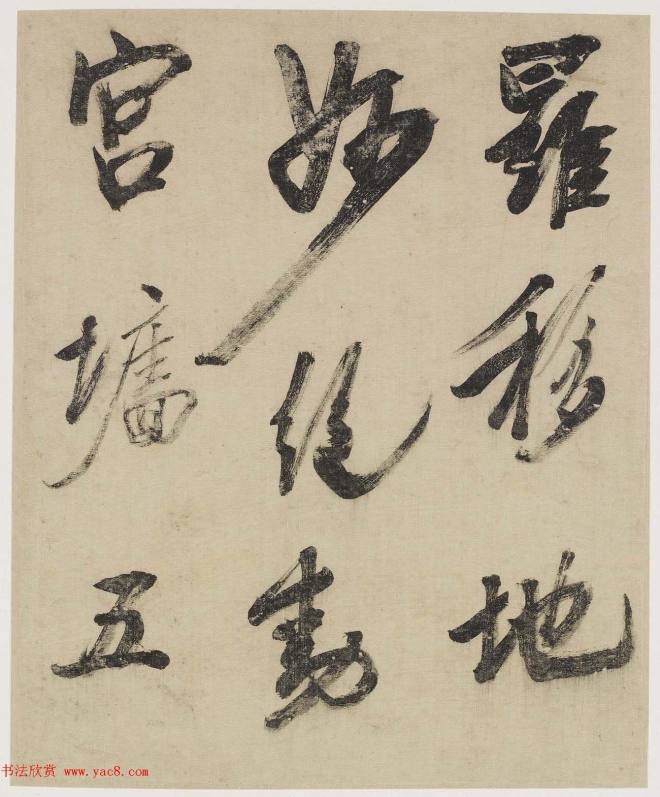 羅移地
妙絕動
宮墻五
书法欣赏 www.yac8.com